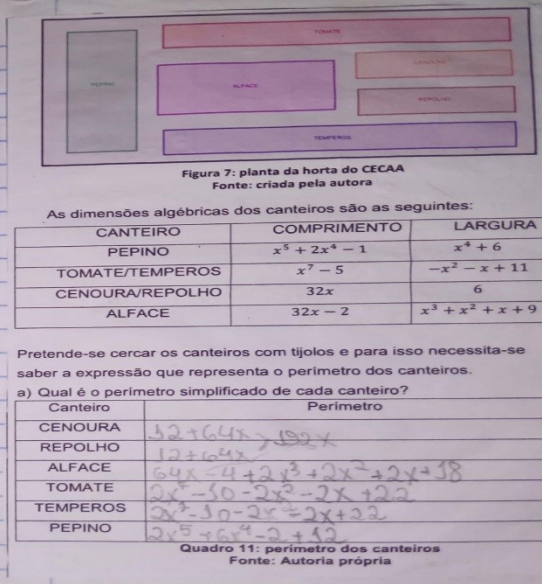 TOMATE
PEPINO
ALFACE
CENOURA
REPOLHO
TEMPEROS
Figura 7: planta da horta do CECAA
Fonte: criada pela autora
As dimensões algébricas dos canteiros são as seguintes:
CANTEIRO COMPRIMENTO LARGURA
PEPINO x⁵ + 2x⁴ − 1 x⁴ + 6
TOMATE/TEMPEROS x⁷ − 5 −x² − x + 11
CENOURA/REPOLHO 32x 6
ALFACE 32x − 2 x³ + x² + x + 9
Pretende-se cercar os canteiros com tijolos e para isso necessita-se
saber a expressão que representa o perímetro dos canteiros.
a) Qual é o perímetro simplificado de cada canteiro?
Canteiro Perímetro
CENOURA 12+64x
REPOLHO 12+64x
ALFACE 64x-4+2x³+2x²+2x+18
TOMATE 2x⁷-10-2x²-2x+22
TEMPEROS 2x⁷-10-2x²-2x+22
PEPINO 2x⁵+6x⁴-2+12
Quadro 11: perímetro dos canteiros
Fonte: Autoria própria